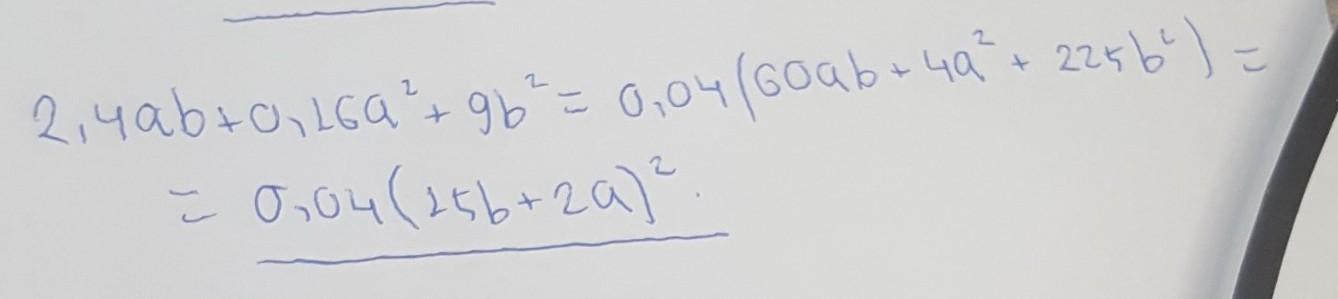 2,4ab+0,16a²+9b²=0,04(60ab+4a²+225b²)=
=0,04(15b+2a)².